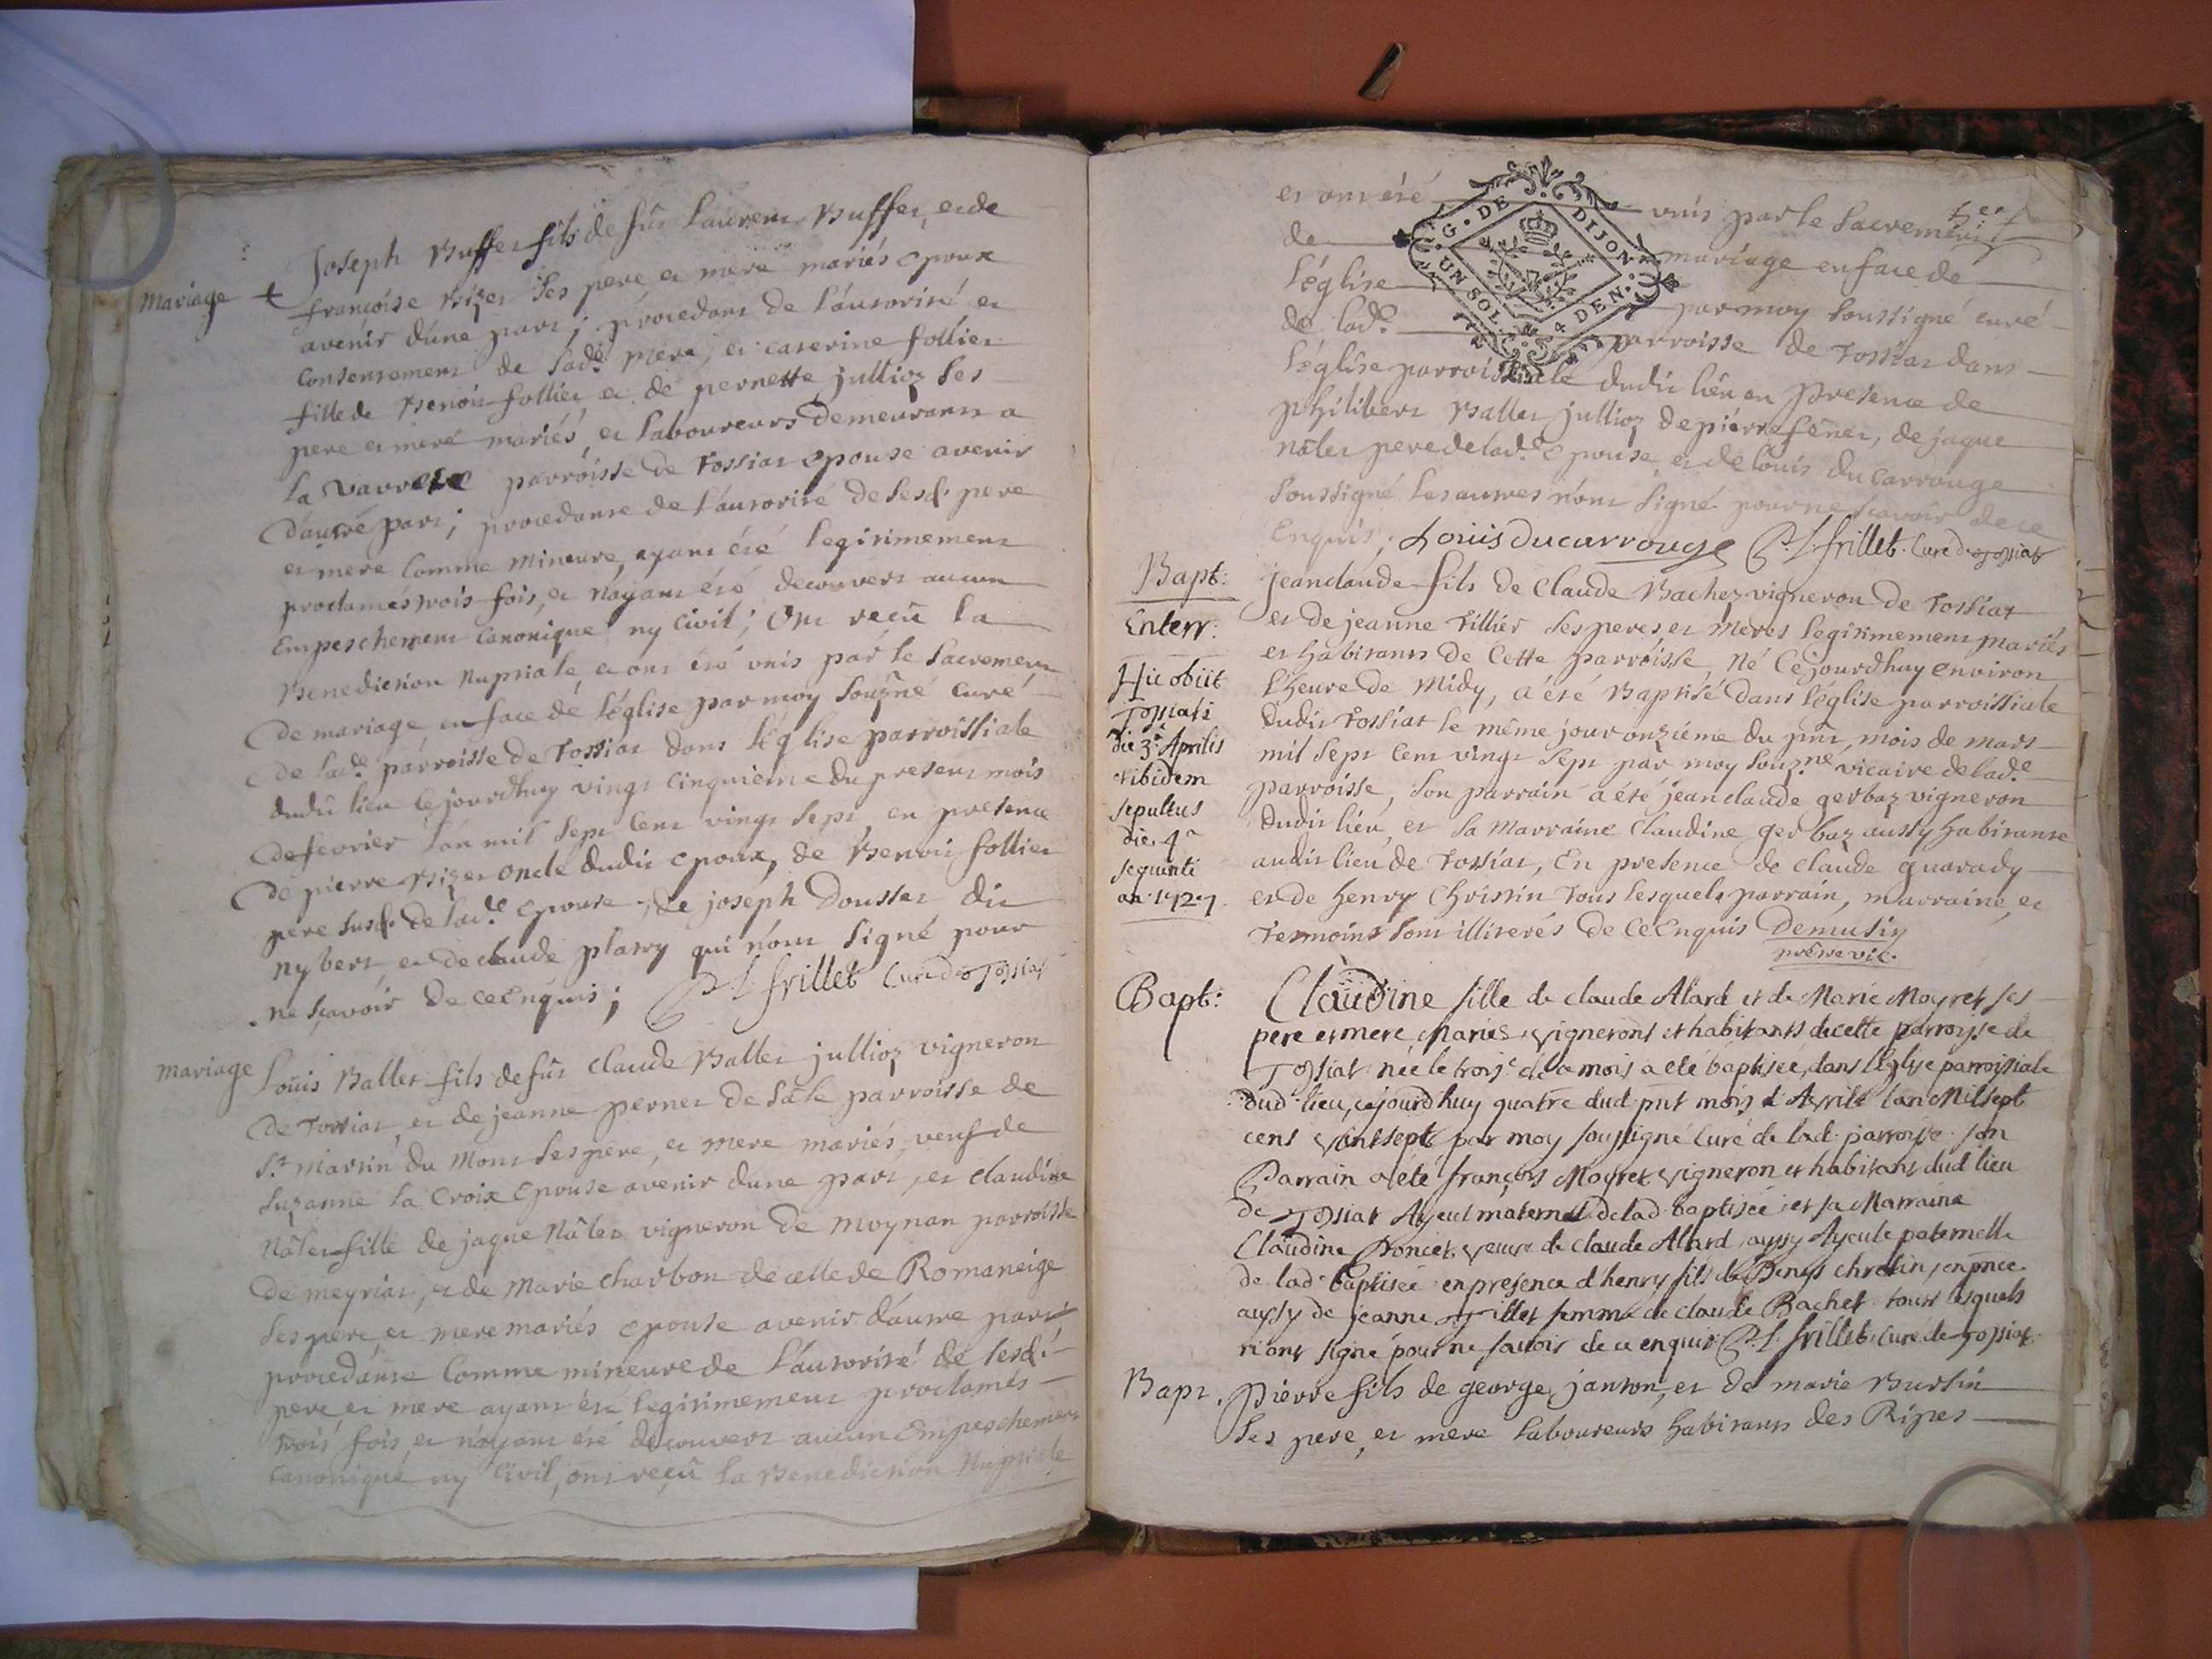 Mariage +
Joseph Buffet fils de fût Laurent Buffet, et de
françoise Bizet ses pere et mere mariés epoux
avenir d'une part; procedant de l'autorité et
consentement de lad.e mere, et caterine follier
fille de Benoit follier, et de pernette jullioz ses
pere et mere mariés, et laboureurs demeurants a
la Varrere parroisse de Tossiat epouse avenir
d'autre part; procedante de l'autorité de sesd. pere
et mere comme mineure, ayant été legitimement
proclamés trois fois, et n'ayant été decouvert aucun
Empeschement canonique ny civil; Ont reçû la
Benediction nuptiale, et ont été unis par le Sacrement
de mariage en face de l'église par moy souzné curé
de lad.e parroisse de Tossiat dans l'église parroissiale
dudit lieu cejourdhuy vingt cinquieme du present mois
de fevrier l'an mil sept cent vingt sept, en presence
de pierre Bizet oncle dudit epoux, de Benoit follier
pere susd. de lad.e epouse, de joseph Dousset dit
nybert, et de claude platry qui n'ont signé pour
ne sçavoir de ce Enquis; P. L. frillet Curé de Tossiat
Mariage
Loüis Ballet fils de fût claude Ballet jullioz vigneron
de Tossiat, et de jeanne pernet de la parroisse de
S.t Martin du Mont ses pere, et mere mariés, veuf de
Suzanne la Croix epouse avenir d'une part, et claudine
Nâlet fille de jaque Nâlet vigneron de moynan parroisse
de meyriat, et de Marie charbon de celle de Romaneige
ses pere, et mere mariés epouse avenir d'autre part
procedante comme mineure de l'autorité de sesd.
pere, et mere ayant été legitimement proclamés
trois fois, et n'ayant été decouvert aucun Empeschement
canonique ny civil, ont reçû la Benediction Nuptiale
et ont été unis par le Sacrement
G. DE DIJON
UN SOL 4 DEN.
de mariage en face de
l'église par moy soussigné curé
de lad.e parroisse de Tossiat dans
l'église parroissiale dudit lieu en presence de
philibert Ballet jullioz de pierre fénet, de jaque
nâlet pere de lad.e epouse, et de loüis du Carrouge
soussigné les autres n'ont signé pour ne sçavoir de ce
Enquis; Loüis ducarrouge P. L. frillet Curé de Tossiat
Bapt:
jeanclaude fils de Claude Bachez vigneron de Tossiat
et de jeanne Tillier ses peres et Meres legitimement mariés
et habitants de Cette parroisse, Né Cejourdhuy environ
l'heure de Midy, a été Baptisé dans l'église parroissiale
dudit Tossiat le même jour onziéme du pnt, mois de Mars
mil sept cent vingt sept par moy souz.né vicaire de lad.e
parroisse, son parrain a été jeanclaude gerbaz vigneron
dudit lieu, et sa Marraine claudine gerbaz aussy habitante
audit lieu de Tossiat, En presence de claude guarady
et de henry Christin tous lesquels parrain, marraine, et
Temoins sont illiterés de ce Enquis Demusiy
prêtre vic.
Enterr:
Hic obiit
Tossiati
die 3.a Aprilis
et ibidem
sepultus
die 4.a
sequenti
an 1727
Bapt:
Claudine fille de claude Alard et de Marie Moyret ses
pere et mere Mariés vignerons et habitants de cette parroysse de
Tossiat née le trois de ce mois a eté baptisee, dans l'Eglise parroissiale
dud lieu, cejourdhuy quatre dud pnt mois d'Avril l'an Mil sept
cent vint sept par moy soussigné Curé de lad parroysse. son
Parrain a eté françois Moyret vigneron et habitant dud lieu
de Tossiat Ayeul maternel de lad baptisée et sa Marraine
Claudine Poncet veuve de claude Alard, aussy Ayeule paternelle
de lad baptisée en presence d'henry fils de Benoist chretin, en pnce
aussy de jeanne Tillet femme de claude Bachet tous lesquels
n'ont signé pour ne savoir de ce enquis P. L. frillet Curé de Tossiat
Bapt.
Pierre fils de george janton, et de marie Burtin
ses pere, et mere laboureurs habitants des Ripes